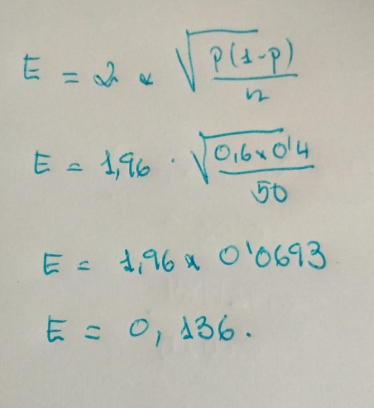 E = 2 × √(p(1-p)/n)
E = 1,96 · √(0,6×0'4/50)
E = 1,96 × 0'0693
E = 0,136.